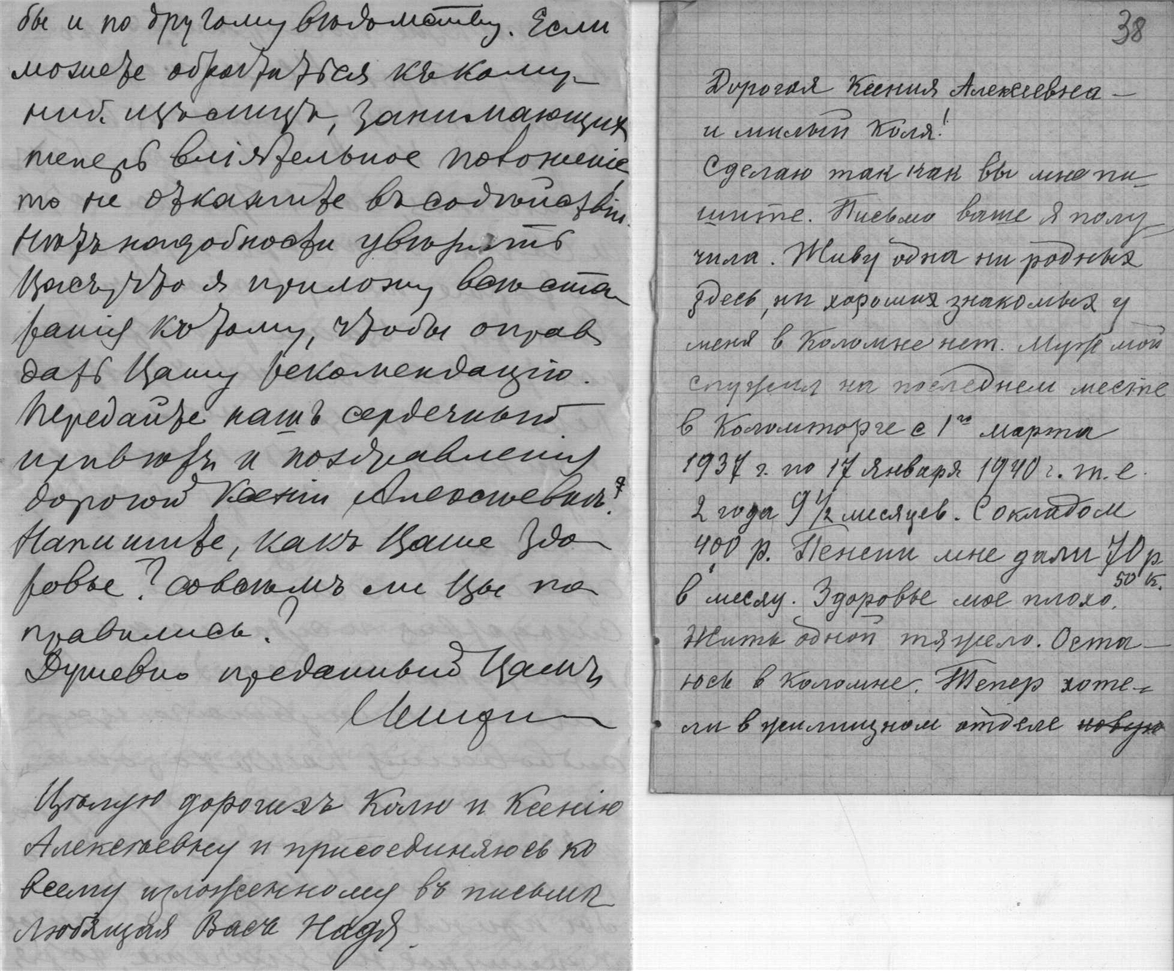 бы и по другому вѣдомству. Если
можете обратиться къ кому-
ниб. изъ лицъ, занимающих
теперь вліятельное положеніе,
то не откажите въ содѣйствіи.
Нѣтъ надобности увѣрять
Васъ, что я приложу все ста-
ранія къ тому, чтобы оправ
дать Вашу рекомендацію.
Передайте нашъ сердечный
привѣтъ и поздравленія
дорогой Ксеніи Алексѣевнѣ.
Напишите, какъ Ваше здо-
ровье? Совсѣмъ ли Вы по-
правились?
Душевно преданный Вамъ
Цѣлую дорогихъ Колю и Ксенію
Алексѣевну и присоединяюсь ко
всему изложенному въ письмѣ
Любящая Васъ Надя.
38
Дорогая Ксения Алексеевна –
и милый Коля!
Сделаю так как вы мне пи-
шите. Письмо ваше я полу-
чила. Живу одна ни родных
здесь, ни хороших знакомых у
меня в Коломне нет. Муж мой
служил на последнем месте
в Коломторге с 1го марта
1937 г. по 17 января 1940 г. т.е.
2 года 9 ½ месяцев. С окладом
400 р. Пенсии мне дали 70 р.
50 к.
в месяц. Здоровье мое плохо.
Жить одной тяжело. Оста-
юсь в Коломне. Тепер хоте-
ли в жилищном отделе новую